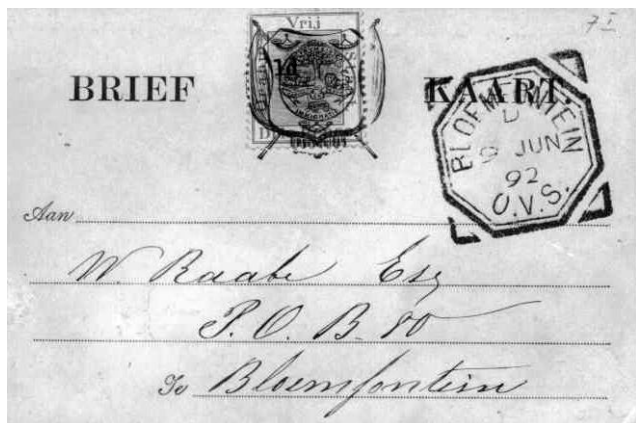 7 I
Vrij
1d
BRIEF KAART.
BLOEMFONTEIN
D
9 JUN
92
O.V.S.
Aan
W. Raabe Esq
P.O. B. 80
To Bloemfontein